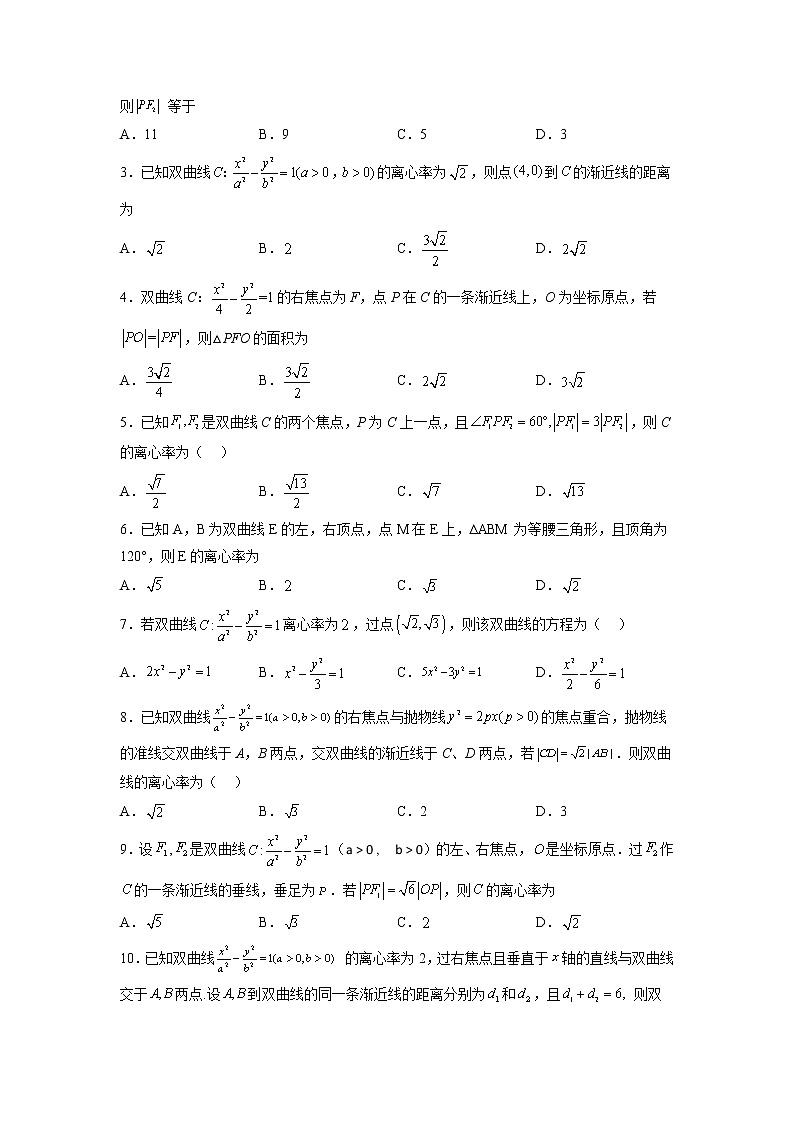 则|PF₂| 等于
A．11 B．9 C．5 D．3
3．已知双曲线C：x²/a² − y²/b² = 1(a > 0，b > 0)的离心率为√2，则点(4,0)到C的渐近线的距离
为
A．√2 B．2 C．3√2/2 D．2√2
4．双曲线C：x²/4 − y²/2 =1的右焦点为F，点P在C的一条渐近线上，O为坐标原点，若
|PO|=|PF|，则△PFO的面积为
A．3√2/4 B．3√2/2 C．2√2 D．3√2
5．已知F₁,F₂是双曲线C的两个焦点，P为C上一点，且∠F₁PF₂ = 60°,|PF₁| = 3|PF₂|，则C
的离心率为（ ）
A．√7/2 B．√13/2 C．√7 D．√13
6．已知A，B为双曲线E的左，右顶点，点M在E上，ΔABM为等腰三角形，且顶角为
120°，则E的离心率为
A．√5 B．2 C．√3 D．√2
7．若双曲线C:x²/a² − y²/b² = 1离心率为2，过点(√2,√3)，则该双曲线的方程为（ ）
A．2x² − y² = 1 B．x² − y²/3 = 1 C．5x² −3y² = 1 D．x²/2 − y²/6 = 1
8．已知双曲线x²/a² − y²/b² = 1(a > 0,b > 0)的右焦点与抛物线y² = 2px(p > 0)的焦点重合，抛物线
的准线交双曲线于A，B两点，交双曲线的渐近线于C、D两点，若|CD| = √2|AB|．则双曲
线的离心率为（ ）
A．√2 B．√3 C．2 D．3
9．设F₁,F₂是双曲线C:x²/a² − y²/b² = 1（a > 0， b > 0）的左、右焦点，O是坐标原点．过F₂作
C的一条渐近线的垂线，垂足为P．若|PF₁| = √6|OP|，则C的离心率为
A．√5 B．√3 C．2 D．√2
10．已知双曲线x²/a² − y²/b² = 1(a > 0,b > 0) 的离心率为2，过右焦点且垂直于x轴的直线与双曲线
交于A,B两点.设A,B到双曲线的同一条渐近线的距离分别为d₁和d₂，且d₁ + d₂ = 6, 则双